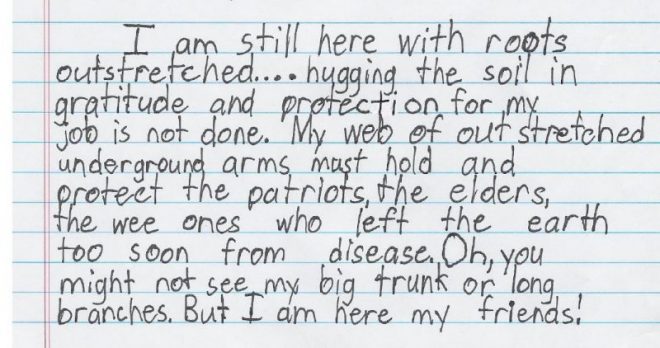 I am still here with roots
outstretched.... hugging the soil in
gratitude and protection for my
job is not done. My web of out stretched
underground arms must hold and
protect the patriots, the elders,
the wee ones who left the earth
too soon from disease. Oh, you
might not see my big trunk or long
branches. But I am here my friends!